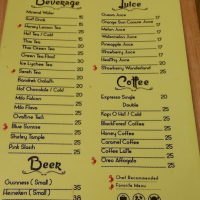 Beverage
Mineral Water 15
Soft Drink 15
Honey Lemon Tea 25
Hot Tea / Cold 25
Thai Tea 25
Thai Green Tea 25
Tea Green Thai 25
Ice Lychee Tea 25
Sarah Tea 25
Bandrek Gobath 25
Hot Chocolate / Cold 25
Milo Falcon 25
Milo Flava 25
Ovaltine Twit 25
Blue Sunrise 25
Shirley Temple 25
Pink Slash 25
Beer
Guinness ( Small ) 35
Heineken ( Small ) 35
Juice
Guava Juice 17
Orange Sun Quick Juice 17
Melon Juice 17
Watermelon Juice 17
Pineapple Juice 17
Strawberry Juice 17
Healthy Juice 20
Strawberry Wonderland 25
Coffee
Expresso Single 20
Double
Kopi O Hot / Cold 25
BlackForest Coffee 25
Honey Coffee 25
Caramel Coffee 25
Coffee Latte 25
Oreo Affogato 25
Chef Recommended
Favorite Menu